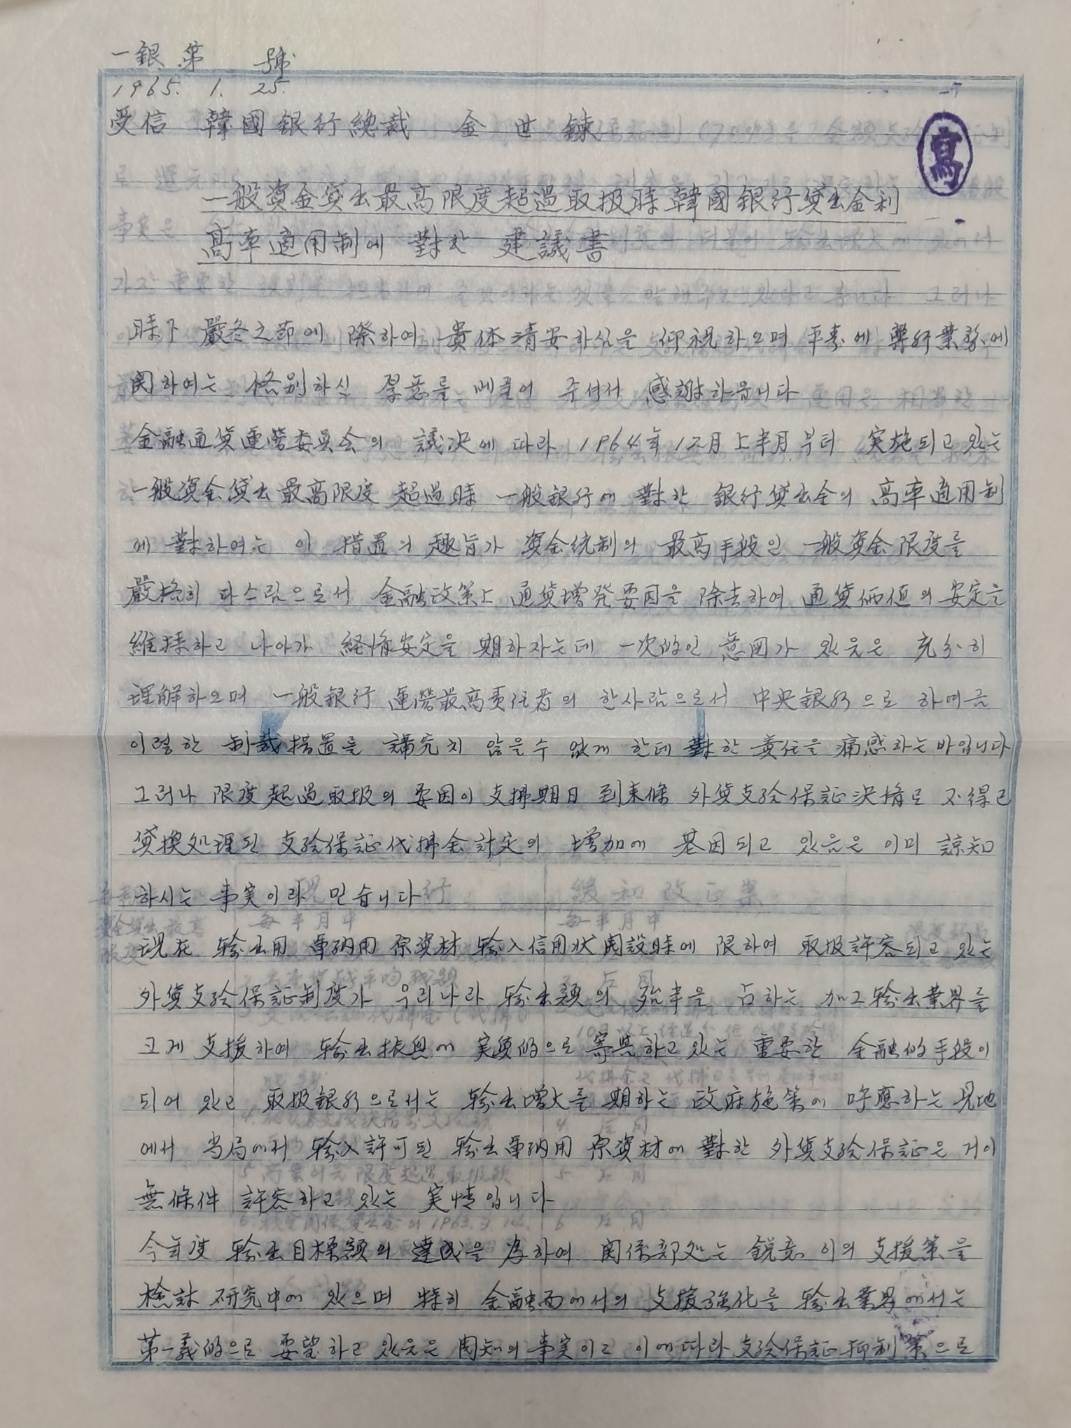 一銀 第 號
1965. 1. 25.
受信 韓國銀行總裁 金世鍊
寫
一般資金貸出最高限度超過取扱時韓國銀行貸出金利
高率適用制에 對한 建議書
時下 嚴冬之節에 際하여 貴体淸安하심을 仰祝하오며 平素에 弊行業務에
関하여는 格別하신 厚意를 베풀어 주셔서 感謝하옵니다
金融通貨運営委員会의 議決에 따라 1964年 12月 上半月부터 実施되고 있는
一般資金貸出最高限度 超過時 一般銀行에 對한 銀行貸出金의 高率適用制
에 對하여는 이 措置의 趣旨가 資金統制의 最高手段인 一般資金限度를
嚴格히 다스림으로서 金融政策上 通貨增発要因을 除去하여 通貨価値의 安定을
維持하고 나아가 経済安定을 期하자는데 一次的인 意図가 있음은 充分히
理解하오며 一般銀行 運営最高責任者의 한사람으로서 中央銀行으로 하여금
이러한 制裁措置를 講究치 않을수 없게 한데 對한 責任을 痛感하는바입니다
그러나 限度超過取扱의 要因이 支拂期日 到来條 外貨支給保証決済로 不得已
貸換処理된 支給保証代拂金計定의 增加에 基因되고 있음은 이미 諒知
하시는 事実이라 믿습니다
現在 輸出用 軍納用 原資材 輸入信用狀 開設時에 限하여 取扱許容되고 있는
外貨支給保証制度가 우리나라 輸出額의 殆半을 占하는 加工輸出業界를
크게 支援하여 輸出振興에 実質的으로 寄與하고 있는 重要한 金融的手段이
되어 있고 取扱銀行으로서는 輸出增大를 期하는 政府施策에 呼應하는 見地
에서 当局에서 輸入許可된 輸出軍納用 原資材에 對한 外貨支給保証은 거이
無條件 許容하고 있는 実情입니다
今年度 輸出目標額의 達成을 為하여 関係部処는 銳意 이의 支援策을
検討 研究中에 있으며 特히 金融面에서의 支援強化를 輸出業界에서는
第一義的으로 要望하고 있음은 周知의 事実이고 이에따라 支給保証抑制策으로